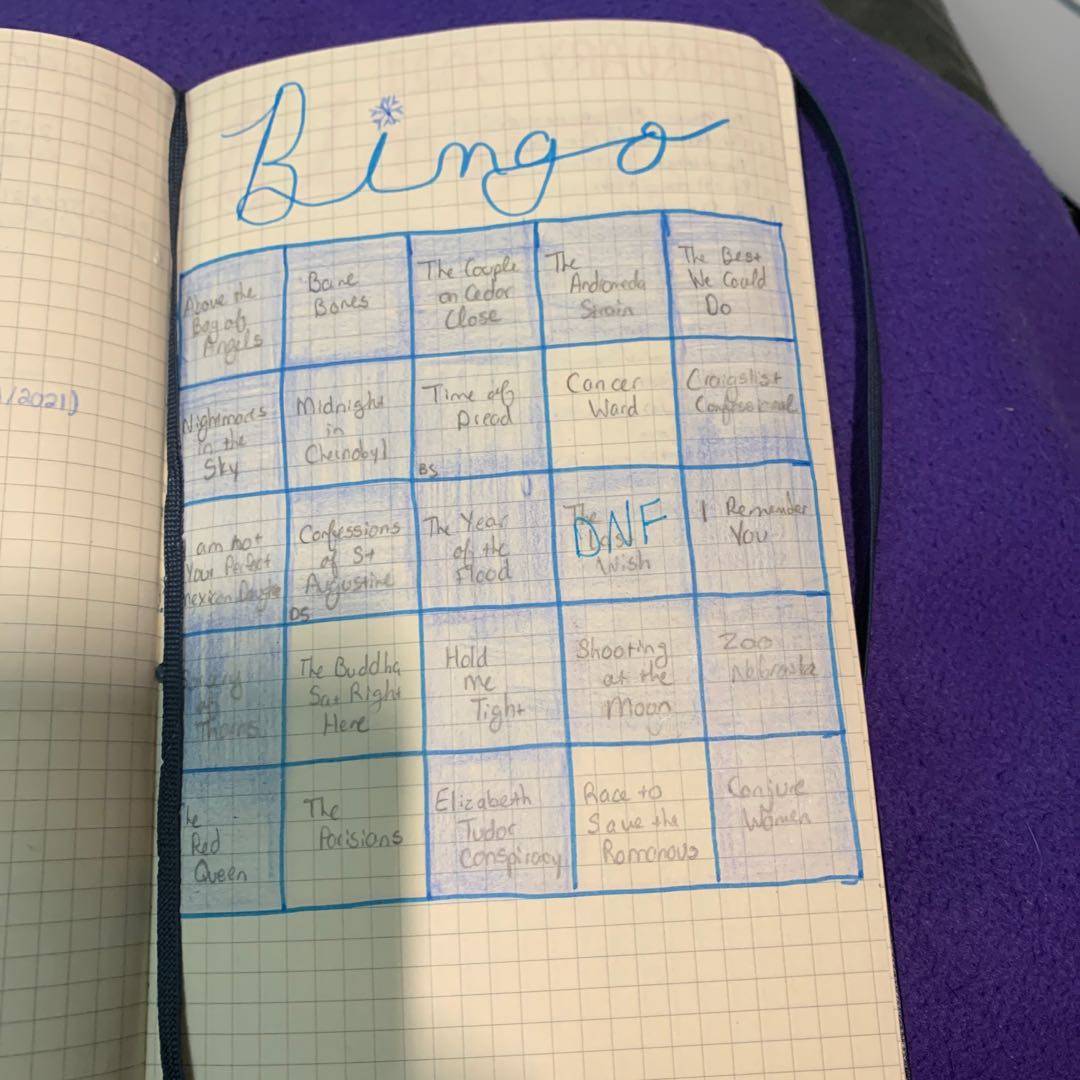 Bingo
1/2021)
Above the
Bay of
Angels
Bare
Bones
The Couple
on Cedar
Close
The
Andromeda
Strain
The Best
We Could
Do
Nightmares
in the
Sky
Midnight
in
Chernobyl
Time of
Dread
BS
Cancer
Ward
Craigslist
Confessional
am not
Your Perfect
Mexican
Confessions
of St
Augustine
DS
The Year
of the
Flood
The
DNF
Wish
I Remember
You
of
Thorns
The Buddha
Sat Right
Here
Hold
me
Tight
Shooting
at the
Moon
Zoo
Nebraska
The
Red
Queen
The
Parisians
Elizabeth
Tudor
Conspiracy
Race to
Save the
Romanovs
Conjure
Women